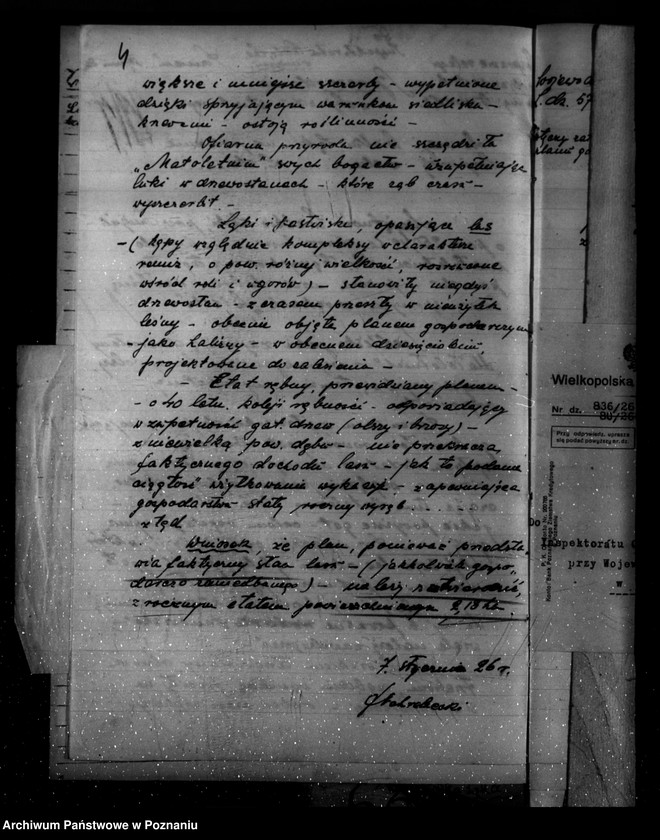 4
większe i mniejsze szczerby – wypełnione
dzięki sprzyjającym warunkom siedlisko-
– ostoją roślinności –
Ofiarna przyroda nie szczędziła
„Matoletnim" swych bogactw – uzupełniając
luki w drzewostanach – które ząb czasu –
wyszczerbił. –
Łąki i pastwiska, opasujące las
– ( kępy względnie kompleksy o charakterze
remiz, o pow. różnej wielkości, rozrzucone
wśród roli i ugorów) – stanowiły niegdyś
drzewostan – z czasem przeszły w nieużytek
leśny – obecnie objęte planem gospodarczym
– jako halizny – w obecnem dziesięcioleciu,
projektowane do zalesienia –
– Etat rębny, przewidziany planem –
– o 40 letn. kolei rębności – odpowiadający
w zupełności gat. drzew (olszy i brzozy) –
z niewielką pow. dębu – nie przekracza
faktycznego dochodu lasu – jak to podana
ciągłość użytkowania wykazuje – zapewniająca
gospodarstwu stały roczny wyrąb . . . .
z tąd
Wniosek, że plan, ponieważ przedsta-
wia faktyczny stan lasu – (jakkolwiek gospo-
darczo zaniedbanego) – należy zatwierdzić,
z rocznym etatem powierzchniowym 2,18 ha.
7. stycznia 26 r.
Wielkopolska
Nr dz. 836/26
Przy odpowiedzi uprasza
się podać powyższy nr. dz.
Do
nspektoratu
przy Woje
w
Archiwum Państwowe w Poznaniu